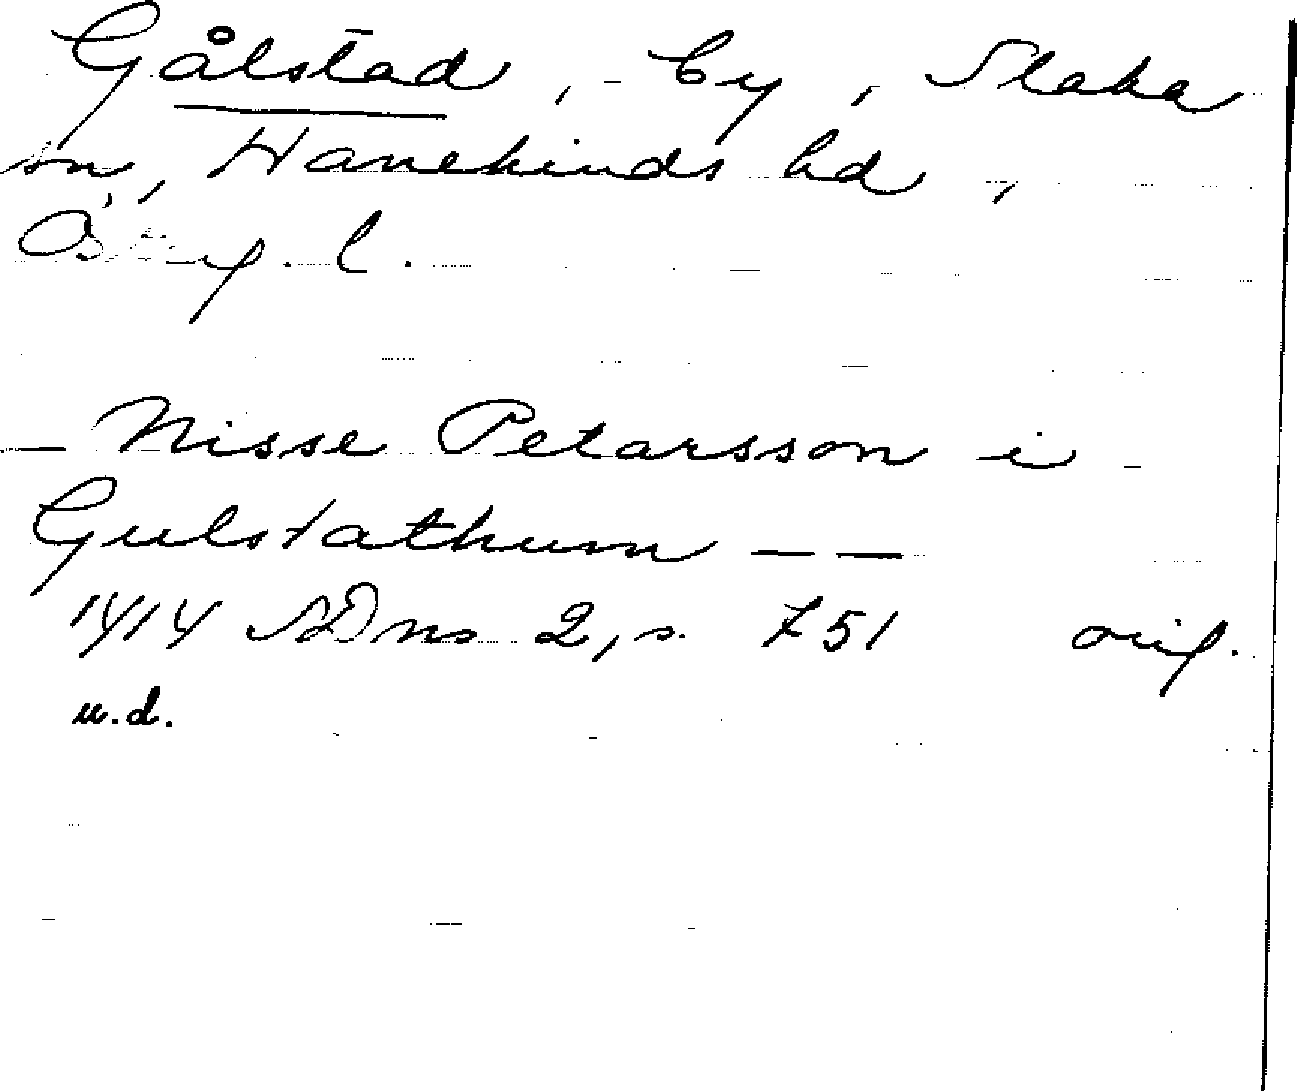 Gålstad, by, Slaka
sn, Hanekinds hd,
Östg. l.
— Nisse Petarsson i
Gulstathum — —
1414 SDns 2, s. 751 orig.
u.d.